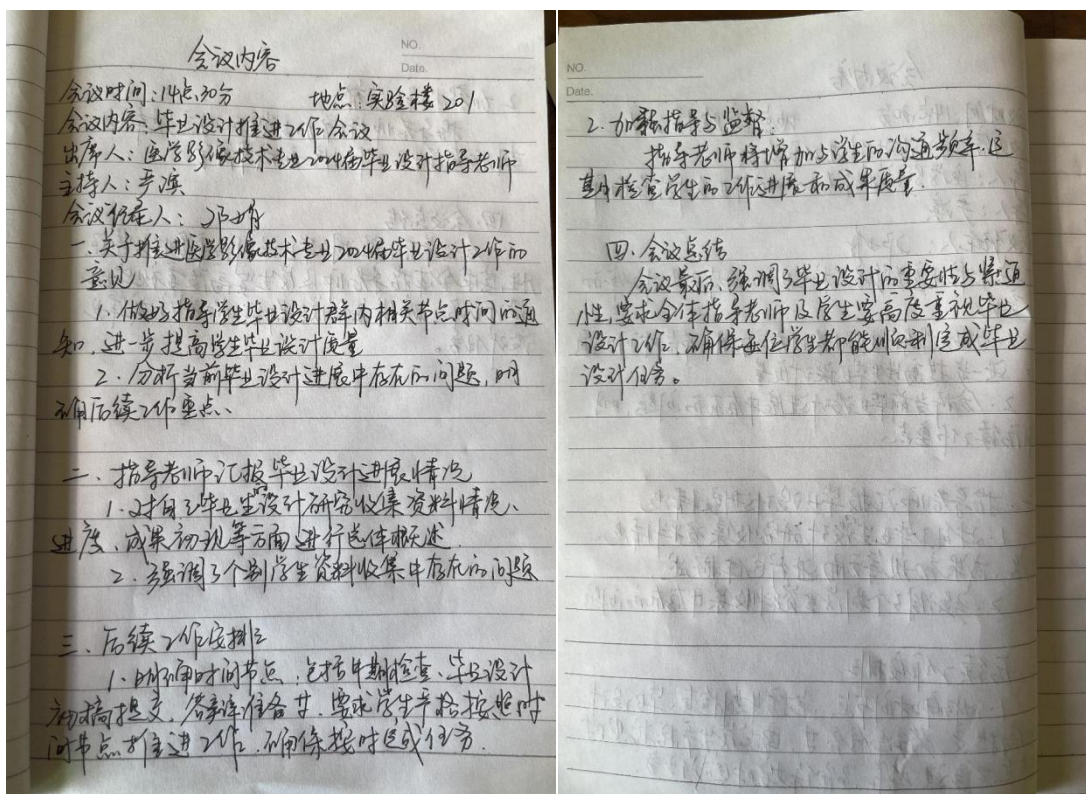 NO.
Date.
会议内容
会议时间:14点30分 地点:实验楼201
会议内容:毕业设计推进工作会议
出席人:医学影像技术专业2024届毕业设计指导老师
主持人:严滨
会议记录人:
一.关于推进医学影像技术专业2024届毕业设计工作的
意见
1.做好指导学生毕业设计群内相关节点时间的通
知,进一步提高学生毕业设计质量
2.分析当前毕业设计进展中存在的问题,明
确后续工作重点、
二.指导老师汇报毕业设计进展情况
1.对自己毕业生的设计研究收集资料情况、
进度、成果初现等方面进行总体概述.
2.强调了个别学生资料收集中存在的问题
三.后续工作安排
1.明确时间节点,包括中期检查、毕业设计
初稿提交,答辩准备等.要求学生严格按照时
间节点推进工作.确保按时完成任务.
NO.
Date.
2.加强指导与监督:
指导老师将增加与学生的沟通频率.定
期检查学生的工作进度和成果质量.
四.会议总结
会议最后,强调了毕业设计的重要性与紧迫
性,要求全体指导老师及学生要高度重视毕业
设计工作,确保每位学生都能顺利完成毕业
设计任务。